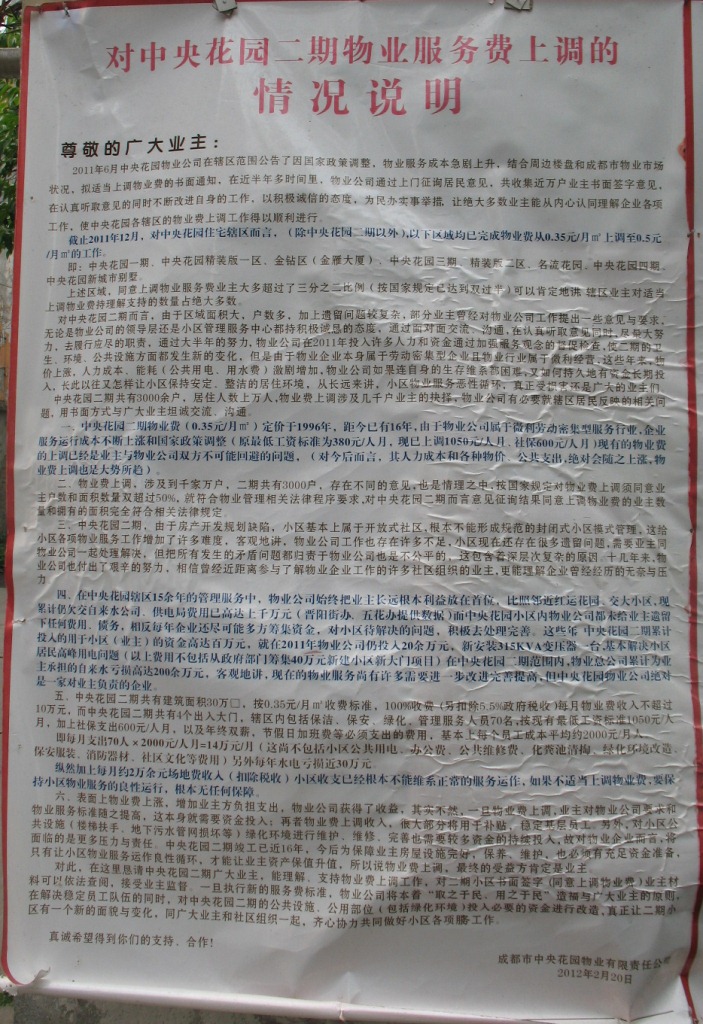 对中央花园二期物业服务费上调的
情况说明
尊敬的广大业主：
2011年6月中央花园物业公司在辖区范围公告了因国家政策调整，物业服务成本急剧上升，结合周边楼盘和成都市物业市场
状况，拟适当上调物业费的书面通知，在近半年多时间里，物业公司通过上门征询居民意见，共收集近万户业主书面签字意见，
在认真听取意见的同时不断改进自身的工作，以积极诚信的态度，为民办实事举措，让绝大多数业主能从内心认同理解企业各项
工作，使中央花园各辖区的物业费上调工作得以顺利进行。
截止2011年12月，对中央花园住宅辖区而言，（除中央花园二期以外），以下区域均已完成物业费从0.35元/月㎡上调至0.5元
/月㎡的工作。
即：中央花园一期、中央花园精装版一区、金钻区（金雁大厦）、中央花园三期、精装版二区、名流花园、中央花园四期、
中央花园新城市别墅。
上述区域，同意上调物业服务费业主大多超过了三分之二比例（按国家规定已达到双过半）可以肯定地讲，辖区业主对适当
上调物业费持理解支持的数量占绝大多数。
对中央花园二期而言，由于区域面积大，户数多，加上遗留问题较复杂，部分业主曾经对物业公司工作提出一些意见与要求，
无论是物业公司的领导层还是小区管理服务中心都持积极诚恳的态度，通过面对面交流、沟通，在认真听取意见同时，尽最大努
力，去履行应尽的职责，通过大半年的努力，物业公司在2011年投入许多人力和资金通过加强服务观念的督促检查，使二期的卫
生、环境、公共设施方面都发生新的变化，但是由于物业企业本身属于劳动密集型企业且物业行业属于微利经营，这些年来，物
价上涨，人力成本、能耗（公共用电、用水费）激剧增加，物业公司如果连自身的生存维系都困难，又如何持久地有资金长期投
入，长此以往又怎样让小区保持安定、整洁的居住环境，从长远来讲，小区物业服务恶性循环，真正受损害还是广大的业主们。
中央花园二期共有3000余户，居住人数上万人，物业费上调涉及几千户业主的抉择，物业公司有必要就辖区居民反映的相关问
题，用书面方式与广大业主坦诚交流、沟通。
一、中央花园二期物业费（0.35元/月㎡）定价于1996年，距今已有16年，由于物业公司属于微利劳动密集型服务行业，企业
服务运行成本不断上涨和国家政策调整（原最低工资标准为380元/人月，现已上调1050元/人月、社保600元/人月）现有的物业费
的上调已经是业主与物业公司双方不可能回避的问题，（对今后而言，其人力成本和各种物价、公共支出，绝对会随之上涨，物
业费上调也是大势所趋）。
二、物业费上调，涉及到千家万户，二期共有3000户，存在不同的意见，也是情理之中，按国家规定对物业费上调须同意业
主户数和面积数量双超过50%，就符合物业管理相关法律程序要求，对中央花园二期而言意见征询结果同意上调物业费的业主数
量和拥有的面积完全符合相关法律规定。
三、中央花园二期，由于房产开发规划缺陷，小区基本上属于开放式社区，根本不能形成规范的封闭式小区模式管理，这给
小区各项物业服务工作增加了许多难度，客观地讲，物业公司工作也存在许多不足，小区现在还存在很多遗留问题，需要业主同
物业公司一起处理解决，但把所有发生的矛盾问题都归责于物业公司也是不公平的，这包含着深层次复杂的原因，十几年来，物
业公司也付出了艰辛的努力，相信曾经近距离参与了解物业企业工作的许多社区组织的业主，更能理解企业曾经经历的无奈与压
力
四、在中央花园辖区15余年的管理服务中，物业公司始终把业主长远根本利益放在首位，比照邻近红运花园、交大小区，现
累计仍欠交自来水公司、供电局费用已高达上千万元（晋阳街办、五花办提供数据）而中央花园小区内物业公司都未给业主遗留
下任何费用、债务，相反每年企业还尽可能多方筹集资金，对小区待解决的问题，积极去处理完善，这些年 中央花园二期累计
投入的用于小区（业主）的资金高达百万元，就在2011年物业公司仍投入20余万元，新安装315KVA变压器一台，基本解决小区
居民高峰用电问题（以上费用不包括从政府部门筹集40万元新建小区新大门项目）在中央花园二期范围内，物业总公司累计为业
主承担的自来水亏损高达200余万元，客观地讲，现在的物业服务尚有许多需要进一步改进完善提高，但中央花园物业公司绝对
是一家对业主负责的企业。
五、中央花园二期共有建筑面积30万□，按0.35元/月㎡收费标准，100%收费（另扣除5.5%政府税收）每月物业费收入不超过
10万元，而中央花园二期共有4个出入大门，辖区内包括保洁、保安、绿化、管理服务人员70名，按现有最低工资标准1050元/人
月，加上社保支出600元/人月，以及年终双薪、节假日加班费等必须支出的费用，基本上每个员工成本平均约2000元/月人
即每月支出70人×2000元/人月=14万元/月（这尚不包括小区公共用电、办公费、公共维修费、化粪池清掏、绿化环境改造、
保安服装、消防器材、社区文化等费用）另外每年水电亏损近30万元。
纵然加上每月约2万余元场地费收入（扣除税收）小区收支已经根本不能维系正常的服务运作，如果不适当上调物业费，要保
持小区物业服务的良性运行，根本无任何保障。
六、表面上物业费上涨，增加业主方负担支出，物业公司获得了收益，其实不然，一旦物业费上调，业主对物业公司要求和
物业服务标准随之提高，这本身就需要资金投入；再者物业费上调收入，很大部分将用于补贴、稳定基层员工，另外，对小区公
共设施（楼梯扶手、地下污水管网损坏等）绿化环境进行维护、维修、完善也需要较多资金的持续投入，故对物业企业而言，将
面临的是更多压力与责任。中央花园二期竣工已近16年，今后为保障业主房屋设施完好，保养、维护，也必须有充足资金准备，
只有让小区物业服务运作良性循环，才能让业主资产保值升值，所以说物业费上调，最终的受益方肯定是业主。
对此，在这里恳请中央花园二期广大业主，能理解、支持物业费上调工作，对二期小区书面签字（同意上调物业费）业主材
料可以依法查阅，接受业主监督。一旦执行新的服务费标准，物业公司将本着"取之于民、用之于民"造福与广大业主的原则，
在解决稳定员工队伍的同时，对中央花园二期的公共设施、公用部位（包括绿化环境）投入必要的资金进行改造，真正让二期小
区有一个新的面貌与变化，同广大业主和社区组织一起，齐心协力共同做好小区各项服务工作。
真诚希望得到你们的支持、合作！
成都市中央花园物业有限责任公司
2012年2月20日